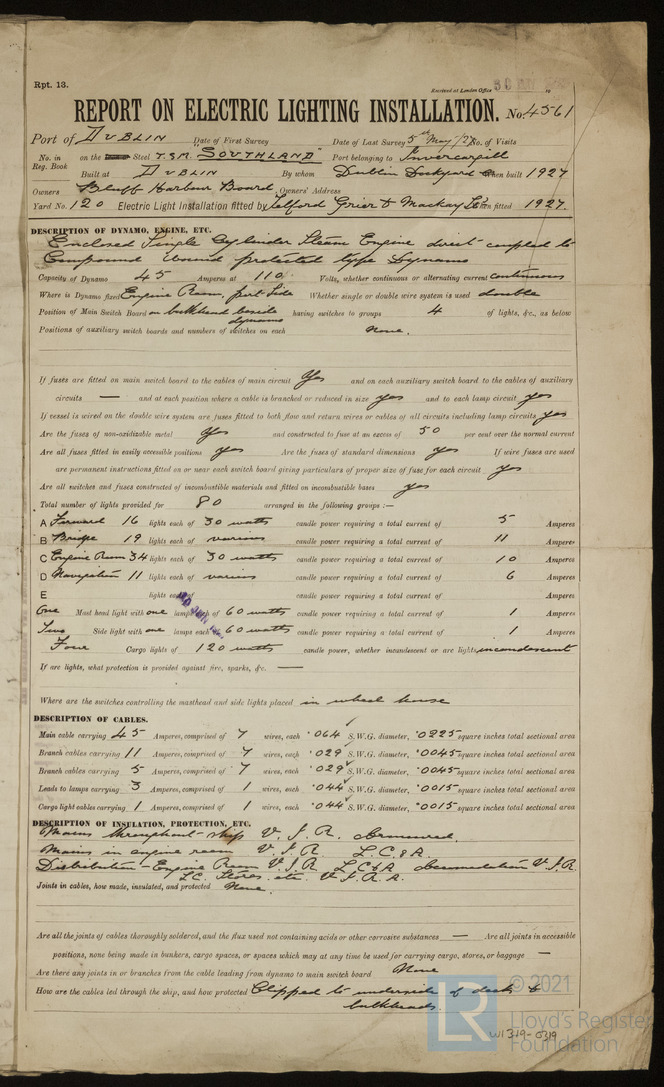 Rpt. 13.
Received at London Office
REPORT ON ELECTRIC LIGHTING INSTALLATION. No. 4561
Port of DUBLIN Date of First Survey Date of Last Survey 5th May /27 No. of Visits
No. in Reg. Book on the Steel T.S.M. "SOUTHLAND" Port belonging to Invercargill
Built at DUBLIN By whom Dublin Dockyard When built 1927
Owners Bluff Harbour Board Owners' Address
Yard No. 120 Electric Light Installation fitted by Telford Grier & Mackay Ld When fitted 1927
DESCRIPTION OF DYNAMO, ENGINE, ETC.
Enclosed Single Cylinder Steam Engine direct coupled to
Compound wound protected type Dynamo
Capacity of Dynamo 45 Amperes at 110 Volts, whether continuous or alternating current continuous
Where is Dynamo fixed Engine Room, port side Whether single or double wire system is used double
Position of Main Switch Board on bulkhead beside dynamo having switches to groups 4 of lights, &c., as below
Positions of auxiliary switch boards and numbers of switches on each None.
If fuses are fitted on main switch board to the cables of main circuit Yes and on each auxiliary switch board to the cables of auxiliary
circuits — and at each position where a cable is branched or reduced in size yes and to each lamp circuit yes
If vessel is wired on the double wire system are fuses fitted to both flow and return wires or cables of all circuits including lamp circuits yes
Are the fuses of non-oxidizable metal Yes and constructed to fuse at an excess of 50 per cent over the normal current
Are all fuses fitted in easily accessible positions yes Are the fuses of standard dimensions yes If wire fuses are used
are permanent instructions fitted on or near each switch board giving particulars of proper size of fuse for each circuit yes
Are all switches and fuses constructed of incombustible materials and fitted on incombustible bases yes
Total number of lights provided for 80 arranged in the following groups :—
A Forward 16 lights each of 30 watts candle power requiring a total current of 5 Amperes
B Bridge 19 lights each of various candle power requiring a total current of 11 Amperes
C Engine Room 34 lights each of 30 watts candle power requiring a total current of 10 Amperes
D Navigation 11 lights each of various candle power requiring a total current of 6 Amperes
E lights each of candle power requiring a total current of Amperes
One Mast head light with one lamps each of 60 watts candle power requiring a total current of 1 Amperes
Two Side light with one lamps each of 60 watts candle power requiring a total current of 1 Amperes
Four Cargo lights of 120 watts candle power, whether incandescent or arc lights incandescent
If arc lights, what protection is provided against fire, sparks, &c. —
Where are the switches controlling the masthead and side lights placed in wheel house
DESCRIPTION OF CABLES.
Main cable carrying 45 Amperes, comprised of 7 wires, each .064 S.W.G. diameter, .0225 square inches total sectional area
Branch cables carrying 11 Amperes, comprised of 7 wires, each .029 S.W.G. diameter, .0045 square inches total sectional area
Branch cables carrying 5 Amperes, comprised of 7 wires, each .029 S.W.G. diameter, .0045 square inches total sectional area
Leads to lamps carrying 3 Amperes, comprised of 1 wires, each .044 S.W.G. diameter, .0015 square inches total sectional area
Cargo light cables carrying 1 Amperes, comprised of 1 wires, each .044 S.W.G. diameter, .0015 square inches total sectional area
DESCRIPTION OF INSULATION, PROTECTION, ETC.
Mains throughout ship V.I.R. Armoured.
Mains in engine room V.I.R. L.C. & A.
Distribution - Engine Room V.I.R. L.C & A Accomodation V.I.R.
L.C. Stores etc V.I.R.A.
Joints in cables, how made, insulated, and protected None.
Are all the joints of cables thoroughly soldered, and the flux used not containing acids or other corrosive substances — Are all joints in accessible
positions, none being made in bunkers, cargo spaces, or spaces which may at any time be used for carrying cargo, stores, or baggage —
Are there any joints in or branches from the cable leading from dynamo to main switch board None
How are the cables led through the ship, and how protected Clipped to underside of deck &
bulkheads.
LR
© 2021
Lloyd's Register
Foundation
W1319-0319